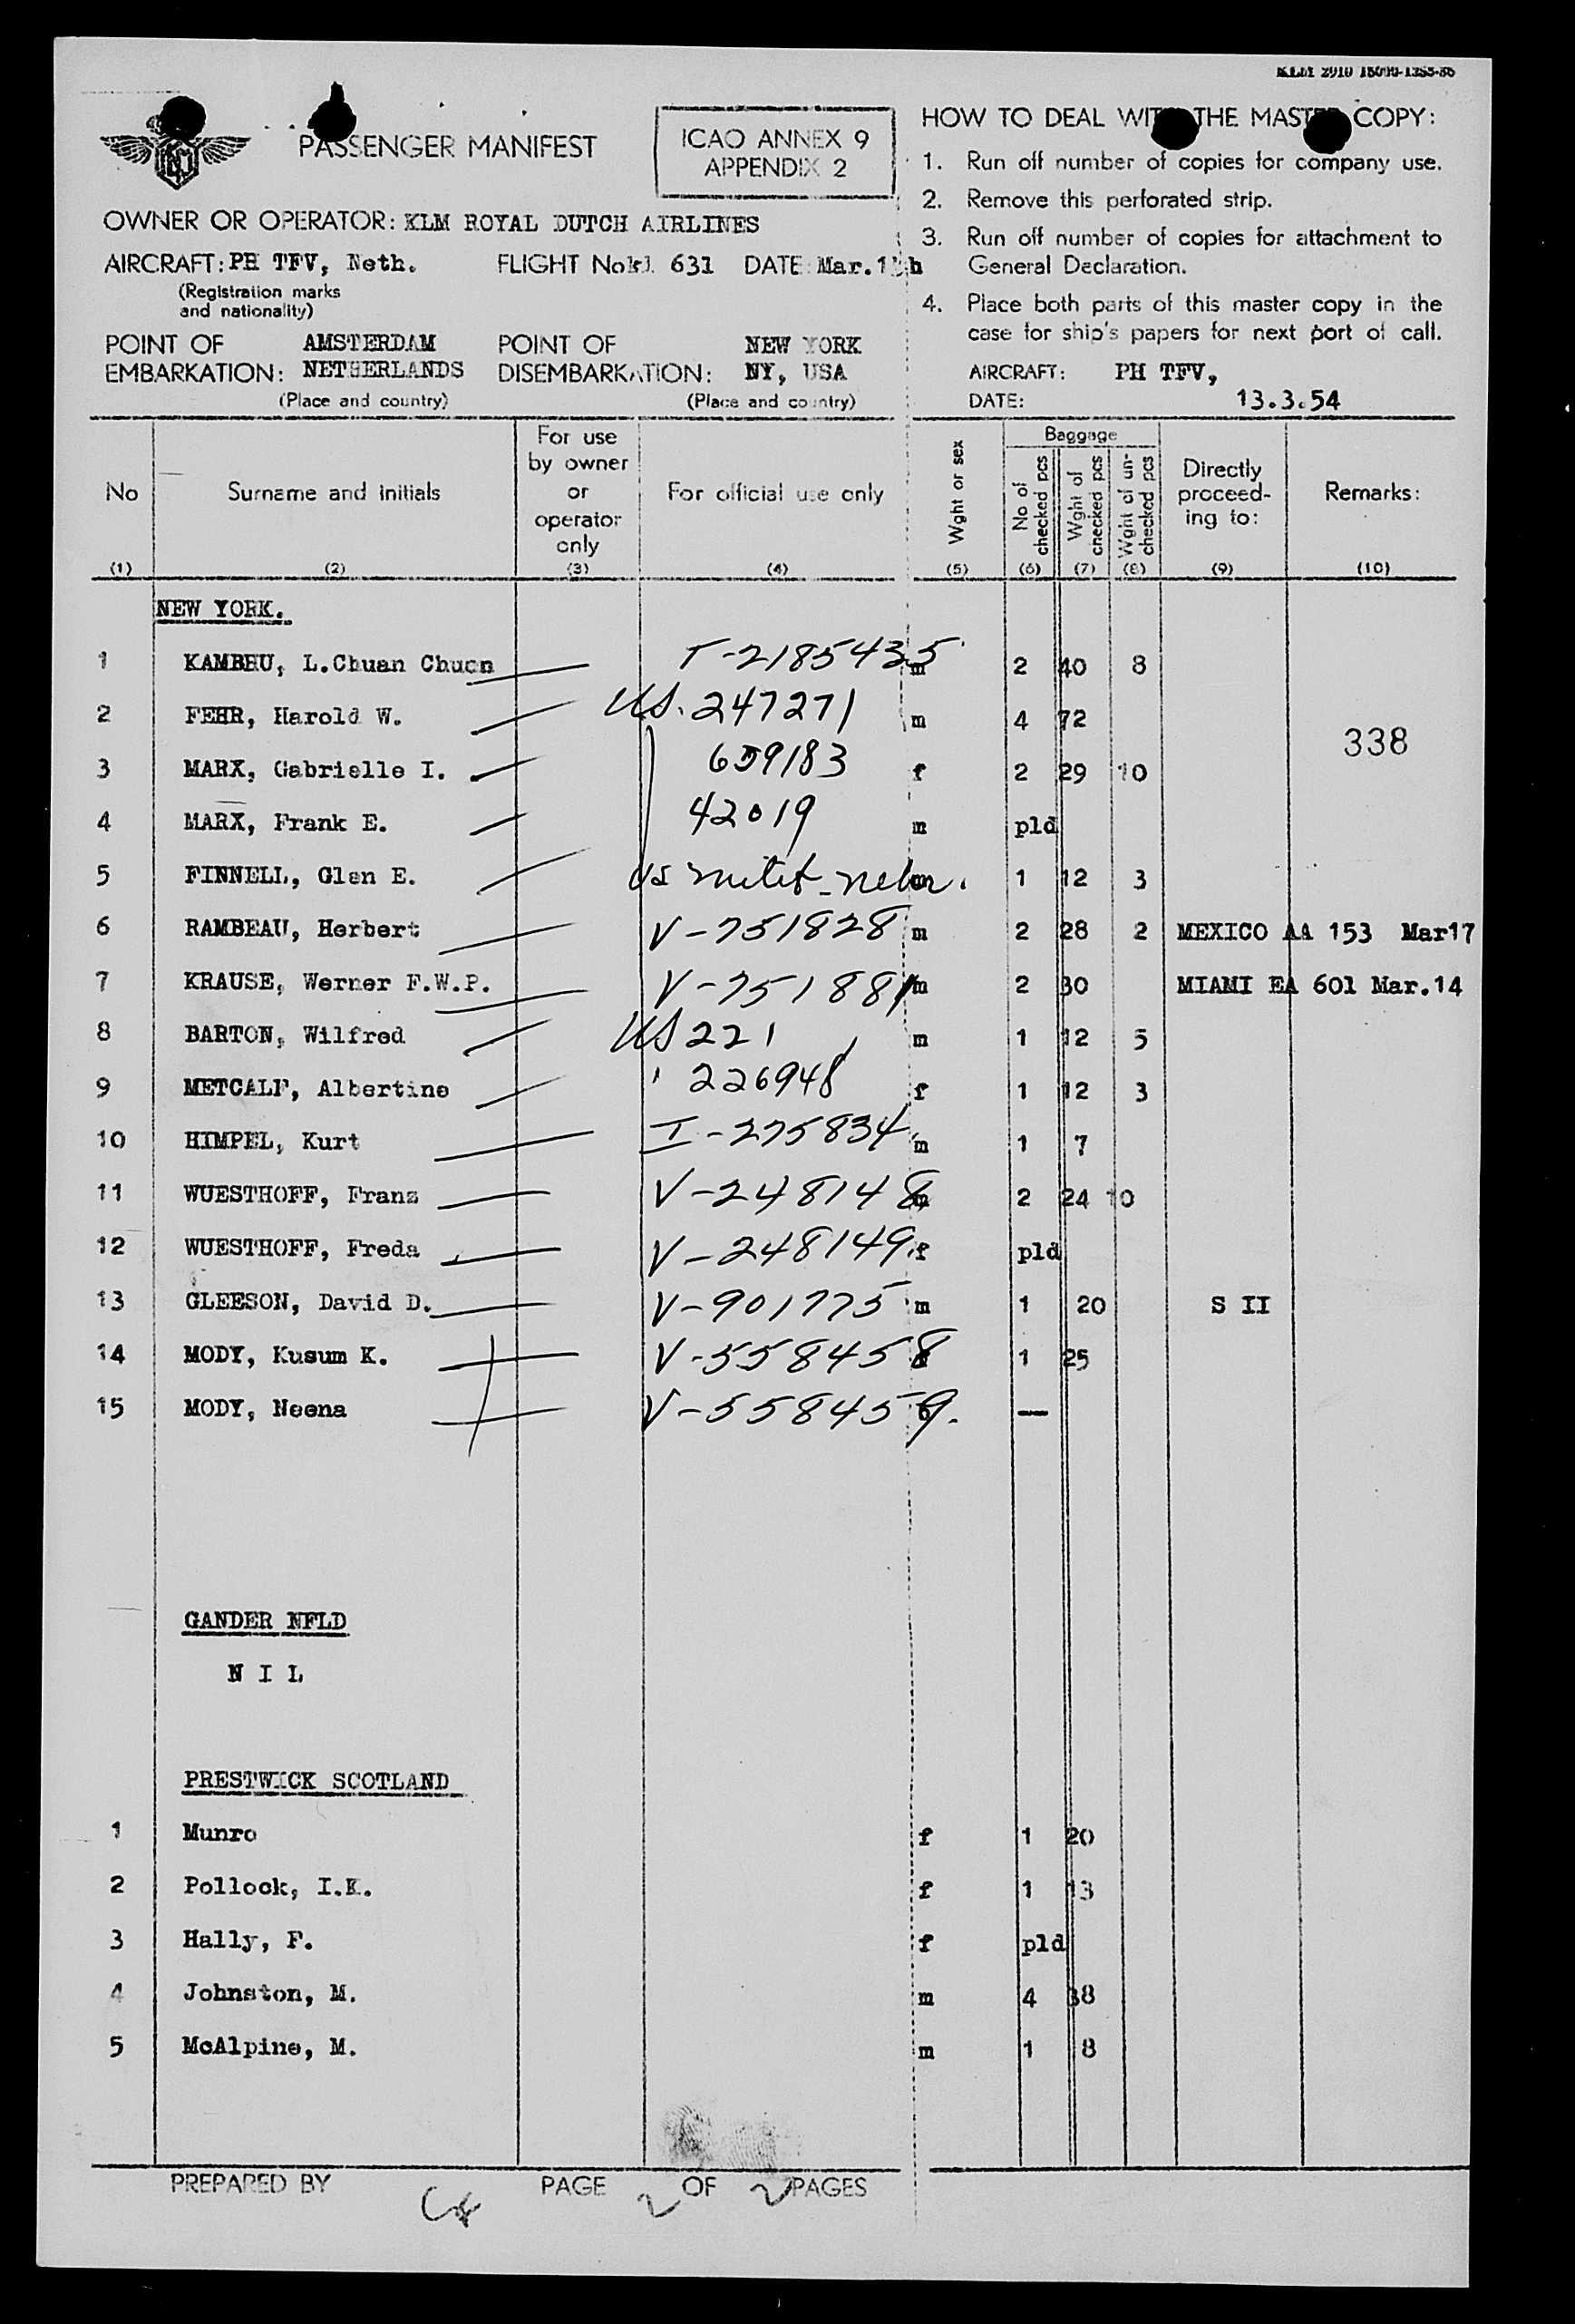 KLM 2910 15000-1255-36
PASSENGER MANIFEST
ICAO ANNEX 9
APPENDIX 2
OWNER OR OPERATOR: KLM ROYAL DUTCH AIRLINES
AIRCRAFT: PH TFV, Neth. FLIGHT No kl 631 DATE Mar.13th
(Registration marks
and nationality)
POINT OF AMSTERDAM POINT OF NEW YORK
EMBARKATION: NETHERLANDS DISEMBARKATION: NY, USA
(Place and country) (Place and country)
HOW TO DEAL WITH THE MASTER COPY:
1. Run off number of copies for company use.
2. Remove this perforated strip.
3. Run off number of copies for attachment to
General Declaration.
4. Place both parts of this master copy in the
case for ship's papers for next port of call.
AIRCRAFT: PH TFV,
DATE: 13.3.54
No Surname and initials For use by owner or operator only For official use only Wght or sex Baggage No of checked pcs Wght of checked pcs Wght of un-checked pcs Directly proceed-ing to: Remarks:
(1) (2) (3) (4) (5) (6) (7) (8) (9) (10)
NEW YORK.
1 KAMBHU, L.Chuan Chuen T-2185435 m 2 40 8
2 FEHR, Harold W. US. 247271 m 4 72
338
3 MARX, Gabrielle I. 659183 f 2 29 10
4 MARX, Frank E. 42019 m pld
5 FINNELL, Glen E. US m 1 12 3
6 RAMBEAU, Herbert V-751828 m 2 28 2 MEXICO AA 153 Mar17
7 KRAUSE, Werner F.W.P. V-751881 m 2 30 MIAMI EA 601 Mar.14
8 BARTON, Wilfred US 221 m 1 12 5
9 METCALF, Albertine 226948 f 1 12 3
10 HIMPEL, Kurt I-275834 m 1 7
11 WUESTHOFF, Franz V-248148 m 2 24 10
12 WUESTHOFF, Freda V-248149 f pld
13 GLEESON, David D. V-901775 m 1 20 S II
14 MODY, Kusum K. V-558458 1 25
15 MODY, Neena V-558459. —
GANDER NFLD
N I L
PRESTWICK SCOTLAND
1 Munro f 1 20
2 Pollock, I.K. f 1 13
3 Hally, F. f pld
4 Johnston, M. m 4 38
5 McAlpine, M. m 1 8
PREPARED BY PAGE 2 OF 2 PAGES